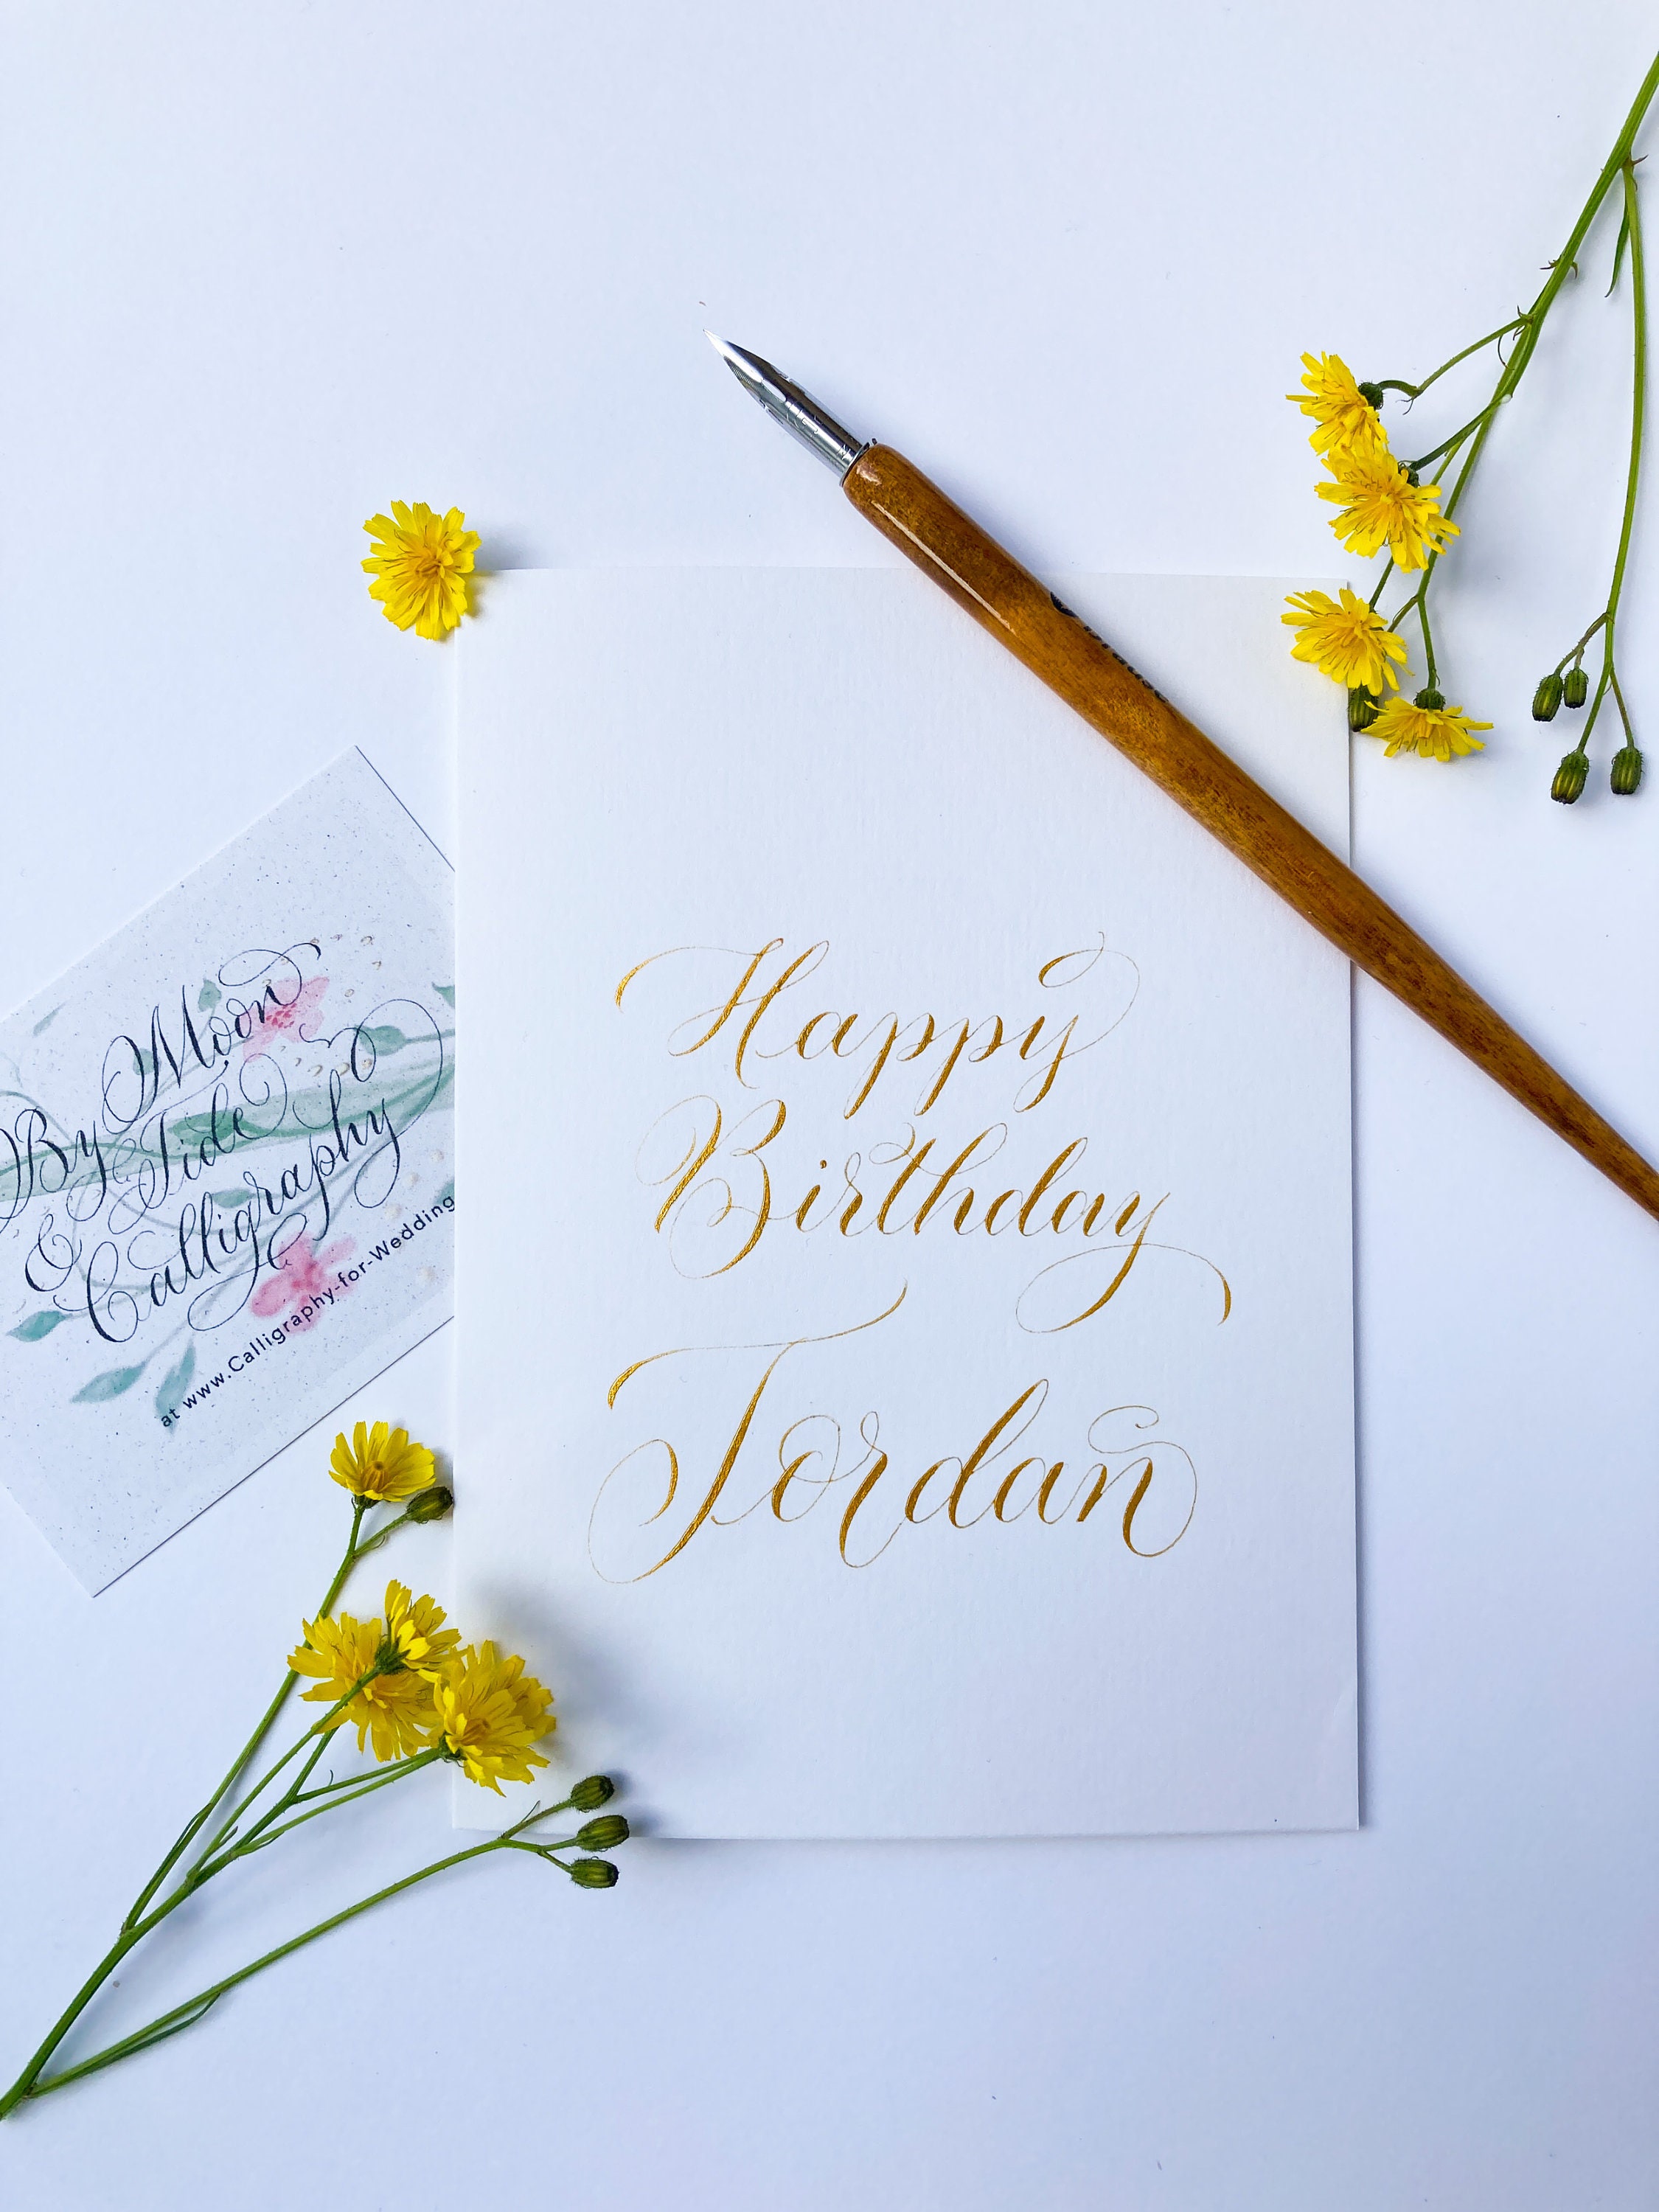 Happy
Birthday
Jordan
By Moon
& Tide
Calligraphy
at www.Calligraphy-for-Wedding